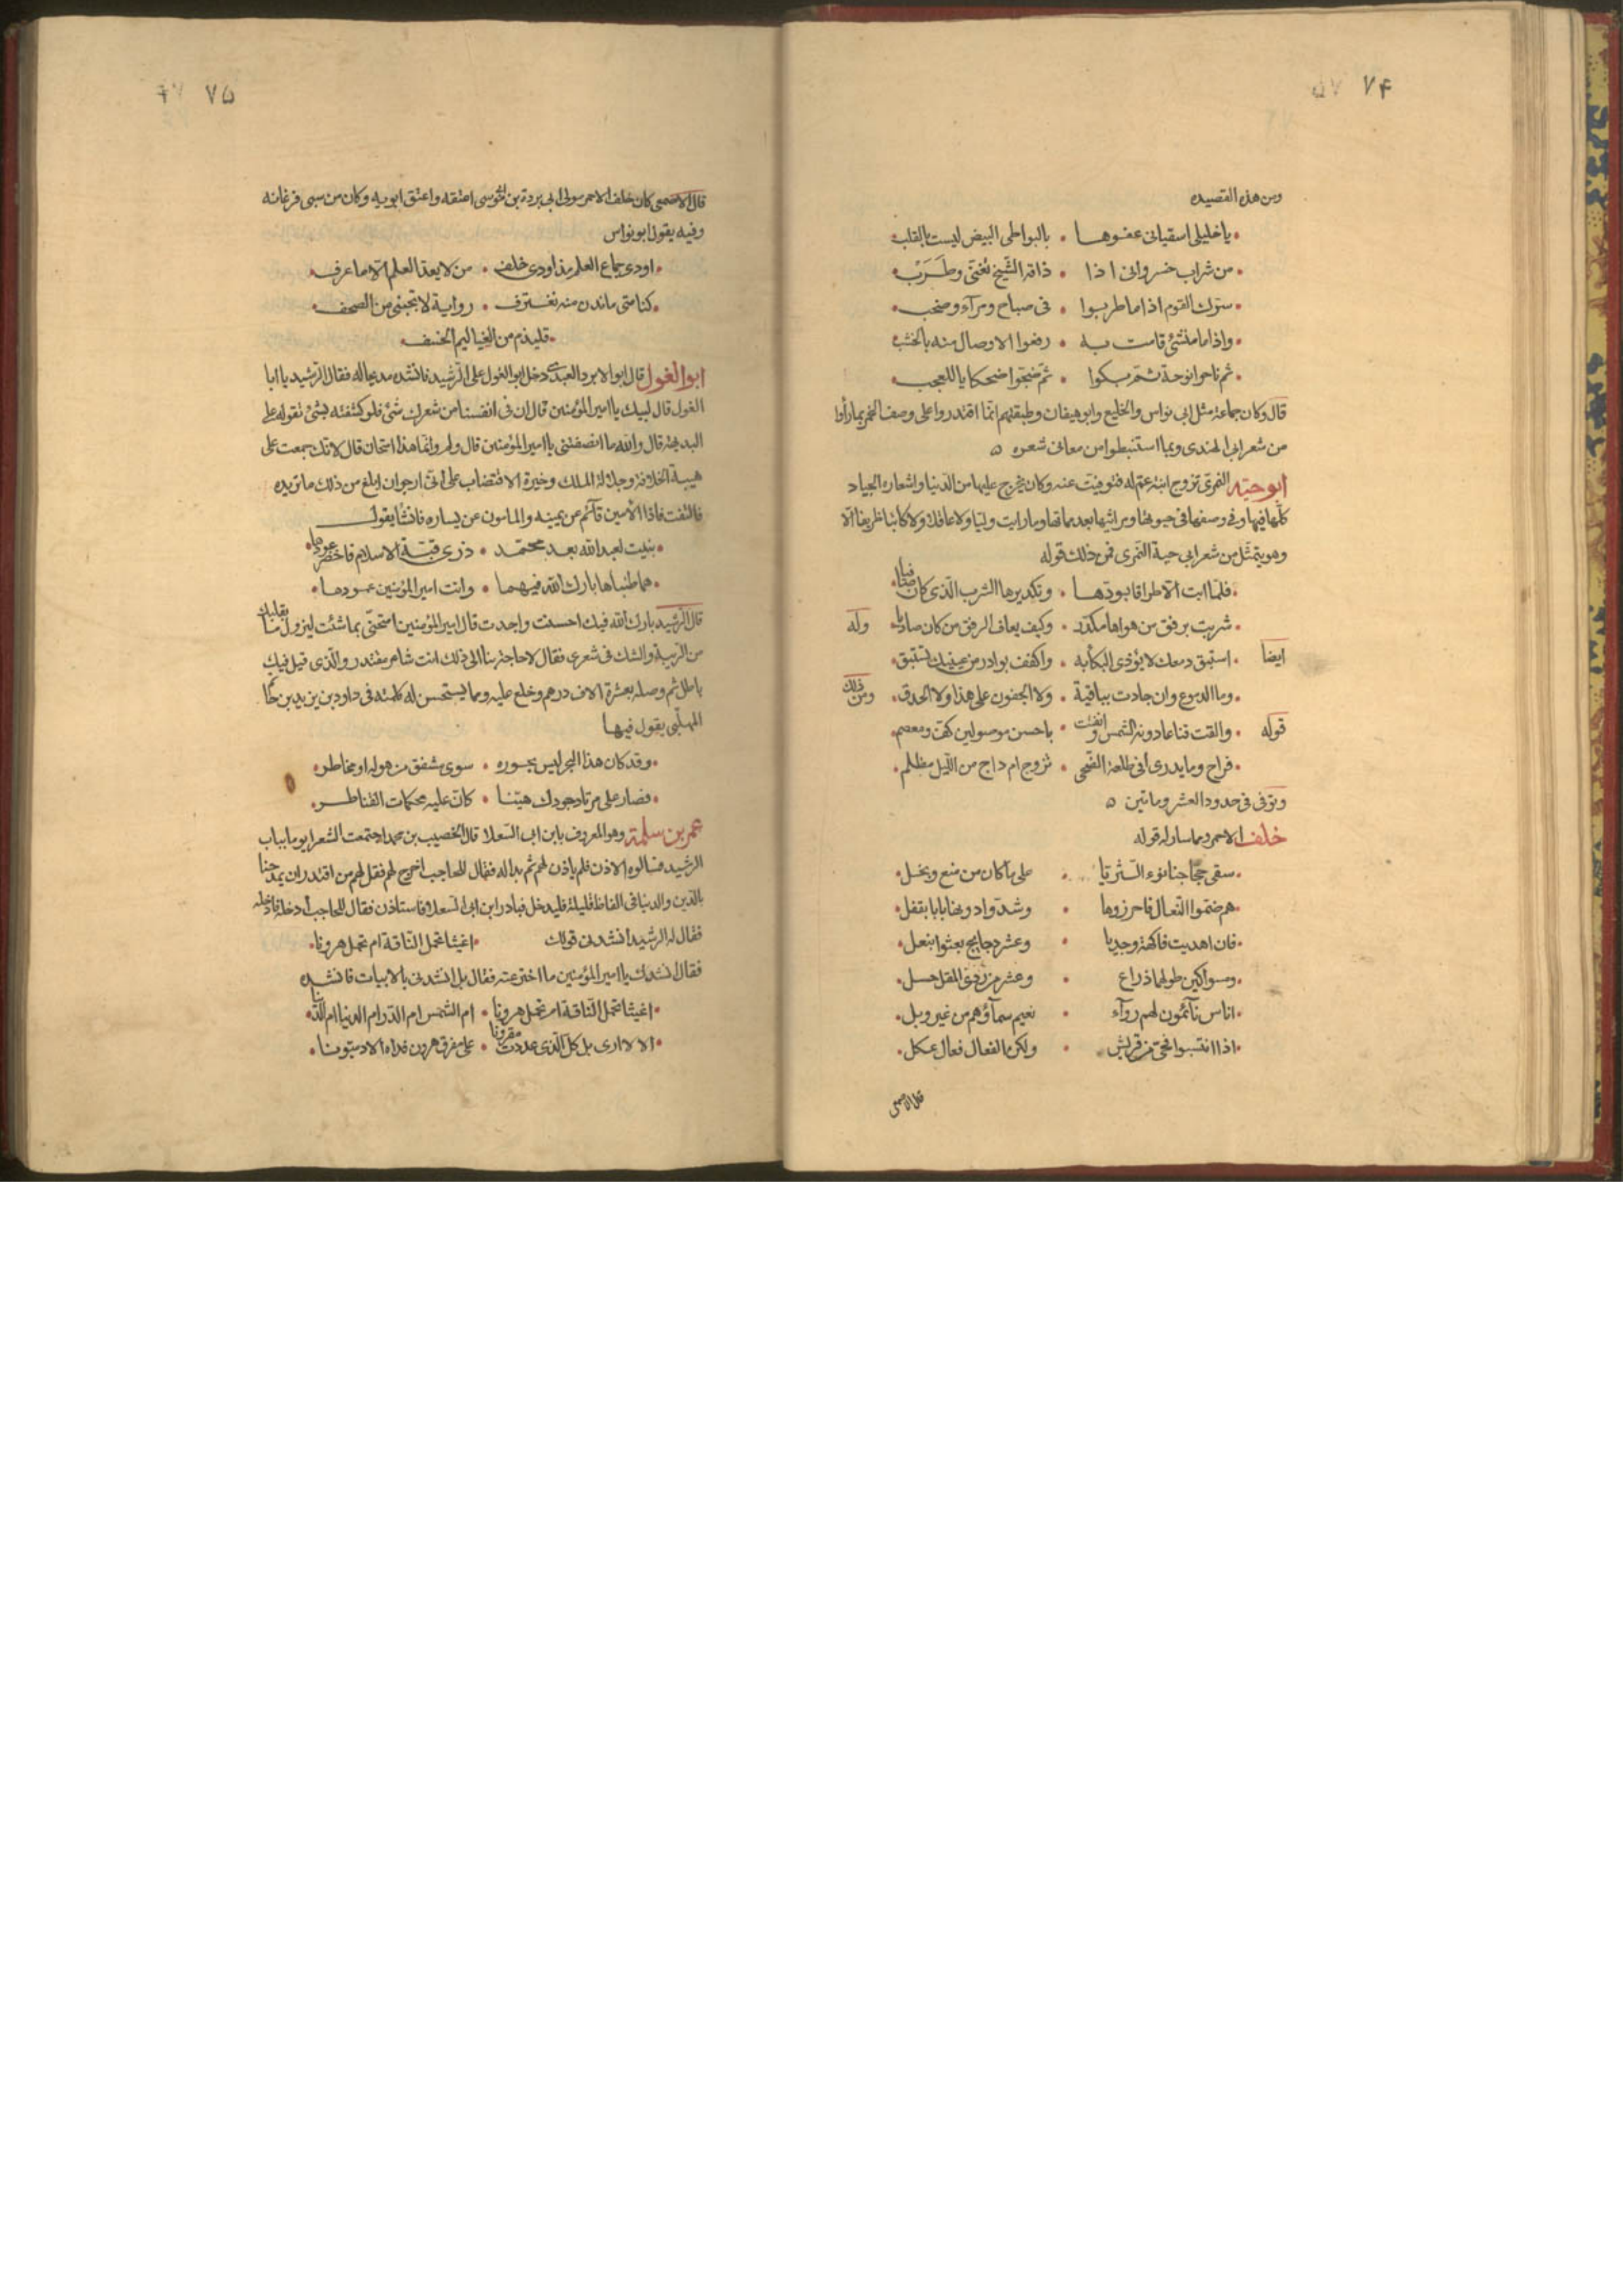 ٧۴
ومن هذه القصيده
يا خليلى اسقيانى عفوها • بالبواطى البيض ليست بالقلب
من شراب خسروانى اذا • ذاقه الشّيخ تغنّى وطَرَبْ
القوم اذا ما طربوا • فى صباح ومرآء وصخب
واذا ما منتشئ قامت به • رفعوا الاوصال منه بالخشب
ثم ناحوا نوحة ثمّ بكوا • ثمّ ضجّوا ضحكا يا للعجب
قال وكان جماعة مثل ابى نواس والخليع وابو هيفان وطبقتهم انّما اقتدروا على وصف الخمر بما رأوا
من شعر ابى الهندى وبما استنبطوا من معانى شعره ه
ابو حيّه النمرى تزوج ابنة عمّ له فتوفيت عنه وكان يخرج عليها من الدّنيا واشعاره الجياد
كلّها فيها وفى وصفها فى حيوتها ومراثيها بعد مماتها وما رايت ولا عاقلا ولا كاتبا ظريفا الّا
وهو يتمثّل من شعر ابى حية النمرى فمن ذلك قوله
فلمّا ابت الّا اطراقا بودّها • وتكديرها الشرب الّذى كان صافيا
شربت برفق من هواها مكدّر • وكيف يعاف الرفق من كان صاديا وله
ايضا استبق دمعك لا يؤذى البكأ به • واكفف بوادر من عينيك تستبق
وما الدموع وان جادت بباقية • ولا الجفون على هذا ولا الحدق ومن ذلك
قوله والقت قناعا دونه الشمس واتّقت • باحسن موصولين كفّ ومعصم
فراح وما يدرى أفى طلعة الضّحى • تروّح ام داج من اللّيل مظلم
وتوفى فى حدود العشر وماتين ه
خلف الاحمر ومما سار له قوله
سقى حجّاجنا نوء الثّريّا • على ما كان من منع وبخل
هم ضمّوا النّعال فاحرزوها • وشدّوا دونها بابا بقفل
فان اهديت فاكهة وجديا • وعشر دجايج بعثوا بنعل
ومسواكين طولهما ذراع • وعشر من ردى المقل حسل
اناس تآئهون لهم روآء • تغيم سمآؤهم من غير وبل
اذا انتسبوا ففى من قريش • ولكن الفعال فعال عكل
قال الاصمعى
٧۵
قال الاصمعى كان خلف الاحمر مولى ابى بردة بن ابى موسى اعتقه واعتق ابويه وكان من سبى فرغانه
وفيه يقول ابو نواس
اودى جماع العلم مذ اودى خلف • من لا يعدّ العلم الّا ما عرف
كنا متى ماندن منه نغترف • رواية لا تجتنى من الصحف
قليذم من العياليم الخسف
ابو الغول قال ابو الابرد العبدى دخل ابو الغول على الرّشيد فانشده مديحا له فقال الرّشيد يا ابا
الغول قال لبيك يا امير المؤمنين قال ان فى انفسنا من شعرك شئ فلو كشفته بشئ تقوله على
البديهة قال والله ما انصفتنى يا امير المؤمنين قال ولم وانّما هذا امتحان قال لانّك جمعت على
هيبة الخلافة وجلالة الملك وحيرة الاقتضاب على انّى ارجو ان ابلغ من ذلك ما تريده
فالتفت فاذا الأمين قآئم عن يمينه والمامون عن يساره فانشأ يقول
بنيت لعبد الله بعد محمّد • ذرى قبّة الاسلام فاخضرّ عودها
هما طنباها بارك الله فيهما • وانت امير المؤمنين عمودها
قال الرّشيد بارك الله فيك احسنت واجدت قال امير المؤمنين امتحنّى بما شئت ليزول ما بقلبك
من الريبة والشك فى شعرى فقال لا حاجة بنا الى ذلك انت شاعر مقتدر والّذى قيل فيك
باطل ثم وصله بعشرة الاف درهم وخلع عليه ومما يستحسن له كلمته فى داود بن يزيد بن حاتم
المهلّبى يقول فيها
وقد كان هذا البحر ليس يجوزه • سوى مشفق من هوله او مخاطر
فصار على مرتاد جودك هيّنا • كانّ عليه محكمات القناطر
عمر بن سلمة وهو المعروف بابن ابى السّعلا قال الخصيب بن محمد اجتمعت الشعرا يوما بباب
الرشيد فسالوه الاذن فلم ياذن لهم ثم بدا له فقال للحاجب اخرج لهم فقل لهم من اقتدر ان يمدحنا
بالدّين والدنيا فى الفاظ قليلة فليدخل فبادر ابن ابى السّعلا فاستاذن فقال للحاجب أدخله فادخله
فقال له الرشيد أنشدنى قولك اغيثا تحمل النّاقة ام تحمل هرونا
فقال انشدك يا امير المؤمنين ما اخترعته فقال بل انشدنى بالابيات فانشده
اغيثا تحمل النّاقة ام تحمل هرونا • ام الشّمس ام البدر ام الدنيا ام الدّينا
الا لا ارى بل كلّ الّذى عددت مقرونا • على مفرق هرون فداه الادميّونا